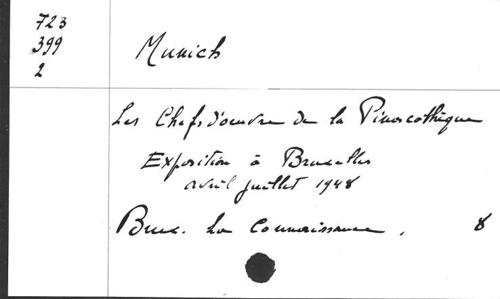 723
399
2
Munich
Les Chefs d'oeuvre de la Pinacothèque
Exposition à Bruxelles
avril juillet 1948
Brux. La Connaissance. 8